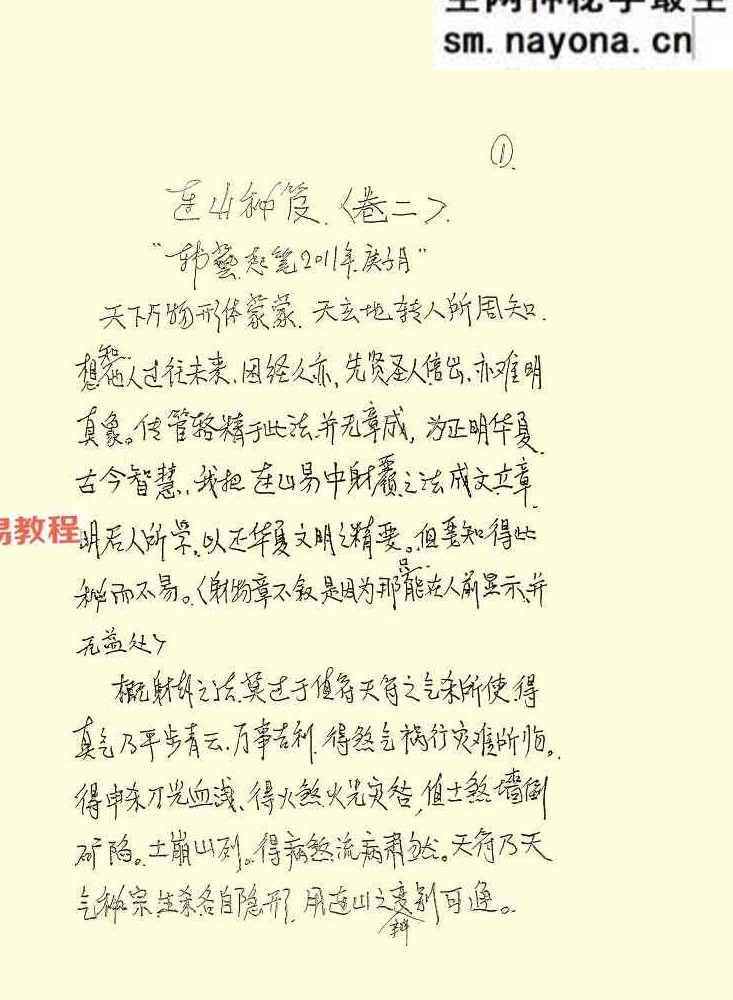 sm.nayona.cn
①.
连山秘笈.〈卷二〉.
"韩藝.起笔2011年.庚子月"
天下万物形体蒙蒙.天玄地转人所周知.
想知他人过往未来.因经久亦,先贤圣人倍出.亦难明
真象。传管辂精于此法.并无章成,为正明华夏.
古今智慧,我把连山易中射覆之法成文立章.
易教程
明后人所学.以正华夏文明之精要。但要知得此
秘而不易。〈射物章不叙是因为那只能在人前显示.并
无益处〉
概射卦之法.莫过于值符天符之气杀所使.得
真气乃平步青云.万事吉利.得煞气祸行灾难所临。
得申杀刀光血浅、得火煞火光灾咎,值土煞墙倒
矿陷。土崩山列。得病煞流病肃。天符乃天
气秘宗.生杀各自隐形.用连山之变辨别可通。